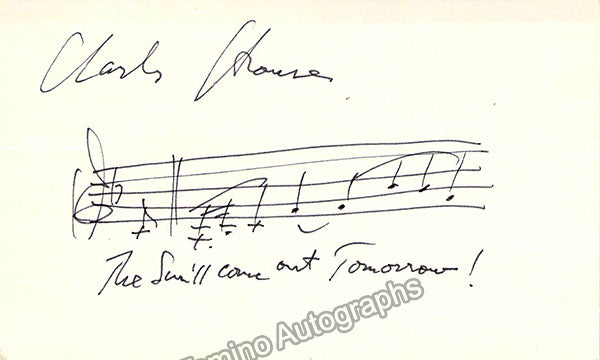 Charles Strouse
The Sun'll come out Tomorrow!
Tamino Autographs